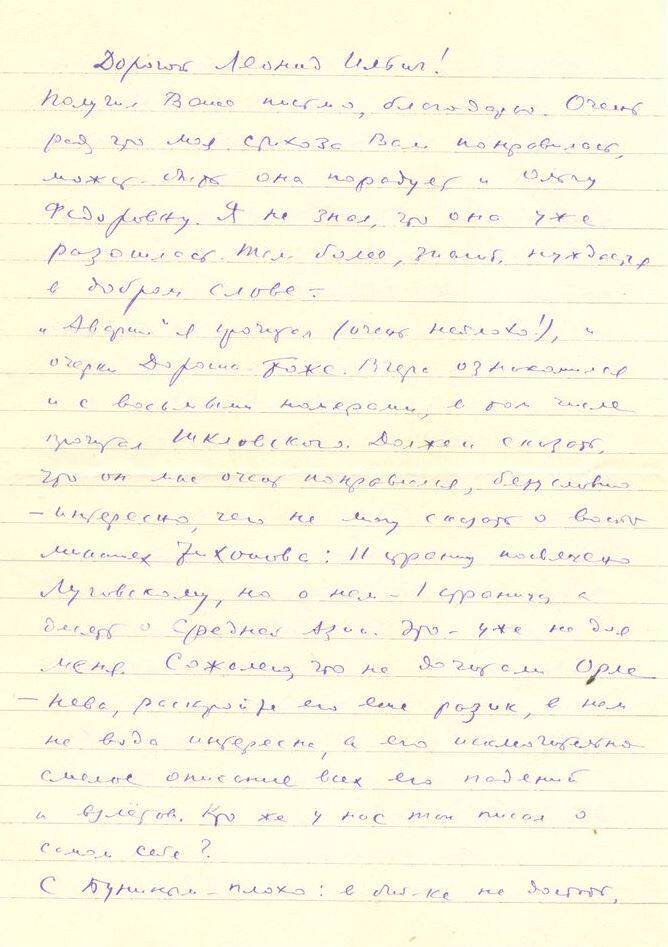 Дорогой Леонид Ильич!
Получил Ваше письмо, благодарю. Очень
рад, что моя стихоза Вам понравилась,
может быть она порадует и Ольгу
Федоровну. Я не знал, что она уже
разошлась. Тем более, значит, нуждается
в добром слове –
"Аварию" я прочитал (очень неплохо!), и
очерки Дороша тоже. Вчера ознакомился
и с восьмыми номерами, в том числе
прочитал Шкловского. Должен сказать,
что он мне очень понравился, безусловно
– интересно, чего не могу сказать о воспо
минаниях Тихонова: 11 страниц посвящено
Луговскому, но о нем – 1 страница, а
десять о Средней Азии. Это – уже не для
меня. Сожалею, что не дочитали Орле
– нева, раскройте его еще разик, в нем
не вода интересна, а его исключительно
смелое описание всех его падений
и взлётов. Кто же у нас так писал о
самом себе?
С Буниным – плохо: в биб-ке не достать,